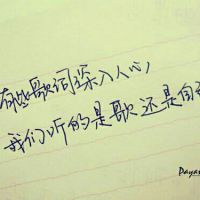 有些歌词深入人心,
我们听的是歌还是自
Paya